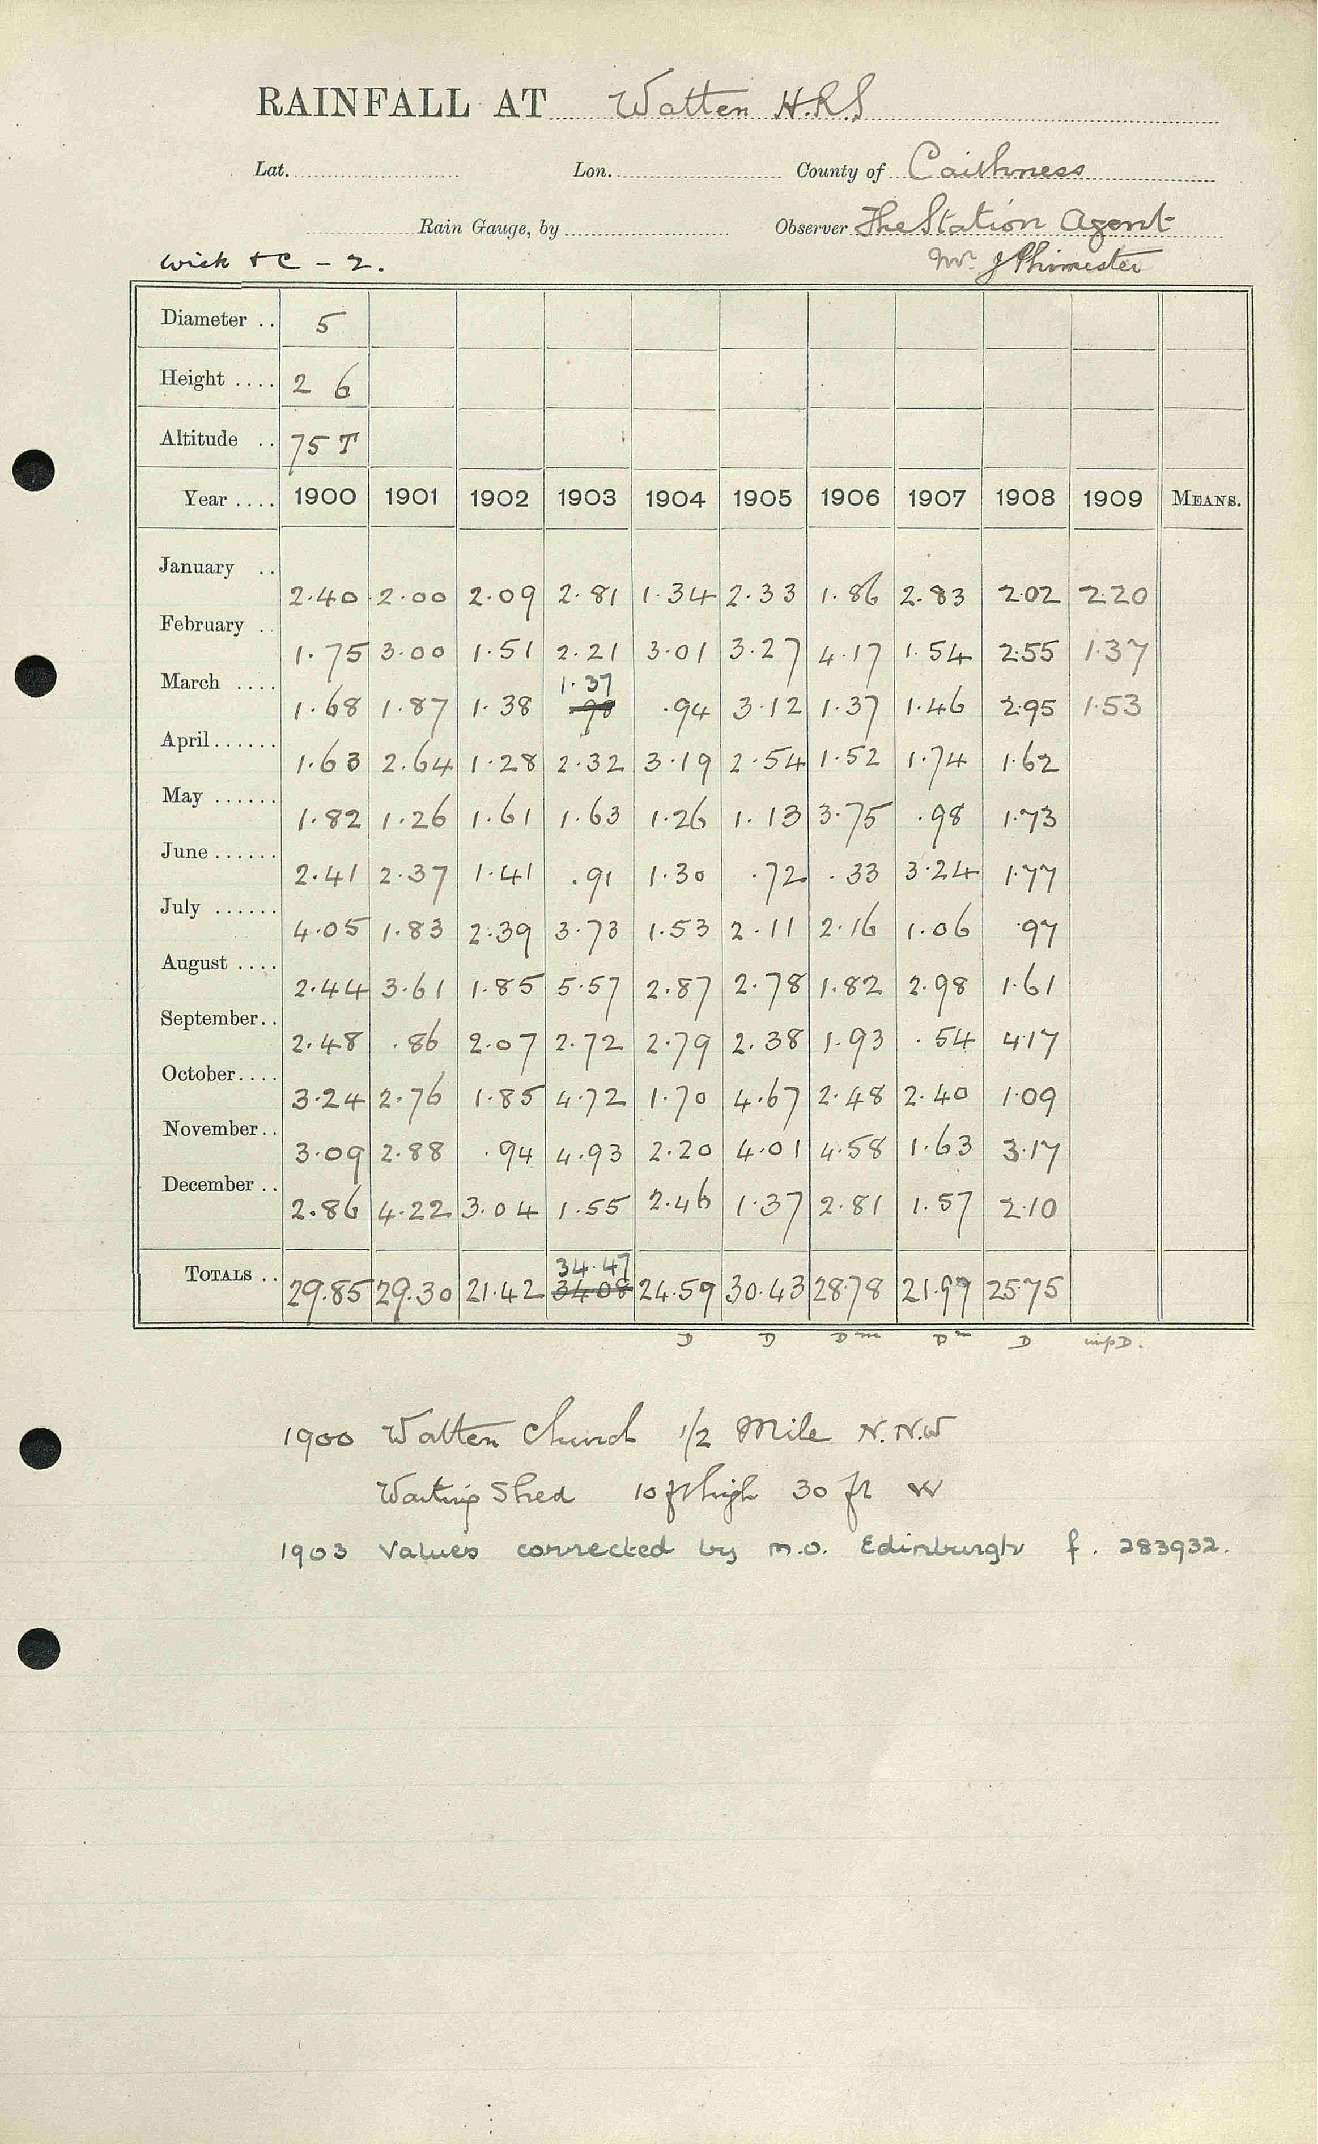 RAINFALL AT Watten H.R.S
Lat. Lon. County of Caithness
Rain Gauge, by Observer The Station Agent
Wick & C - 2. Mr J Phimester
Diameter .. 5
Height .... 2 6
Altitude .. 75 T
Year .... 1900 1901 1902 1903 1904 1905 1906 1907 1908 1909 MEANS.
January .. 2.40 2.00 2.09 2.81 1.34 2.33 1.86 2.83 2.02 2.20
February .. 1.75 3.00 1.51 2.21 3.01 3.27 4.17 1.54 2.55 1.37
1.37
March .... 1.68 1.87 1.38 .98 .94 3.12 1.37 1.46 2.95 1.53
April...... 1.63 2.64 1.28 2.32 3.19 2.54 1.52 1.74 1.62
May ...... 1.82 1.26 1.61 1.63 1.26 1.13 3.75 .98 1.73
June...... 2.41 2.37 1.41 .91 1.30 .72 .33 3.24 1.77
July ...... 4.05 1.83 2.39 3.73 1.53 2.11 2.16 1.06 .97
August .... 2.44 3.61 1.85 5.57 2.87 2.78 1.82 2.98 1.61
September.. 2.48 .86 2.07 2.72 2.79 2.38 1.93 .54 4.17
October.... 3.24 2.76 1.85 4.72 1.70 4.67 2.48 2.40 1.09
November.. 3.09 2.88 .94 4.93 2.20 4.01 4.58 1.63 3.17
December .. 2.86 4.22 3.04 1.55 2.46 1.37 2.81 1.57 2.10
34.47
TOTALS .. 29.85 29.30 21.42 34.08 24.59 30.43 28.78 21.97 25.75
D D Dm Dm D impD.
1900 Watten Church 1/2 Mile N.N.W
Waiting Shed 10 ft high 30 ft W
1903 Values corrected by M.O. Edinburgh f. 283932.